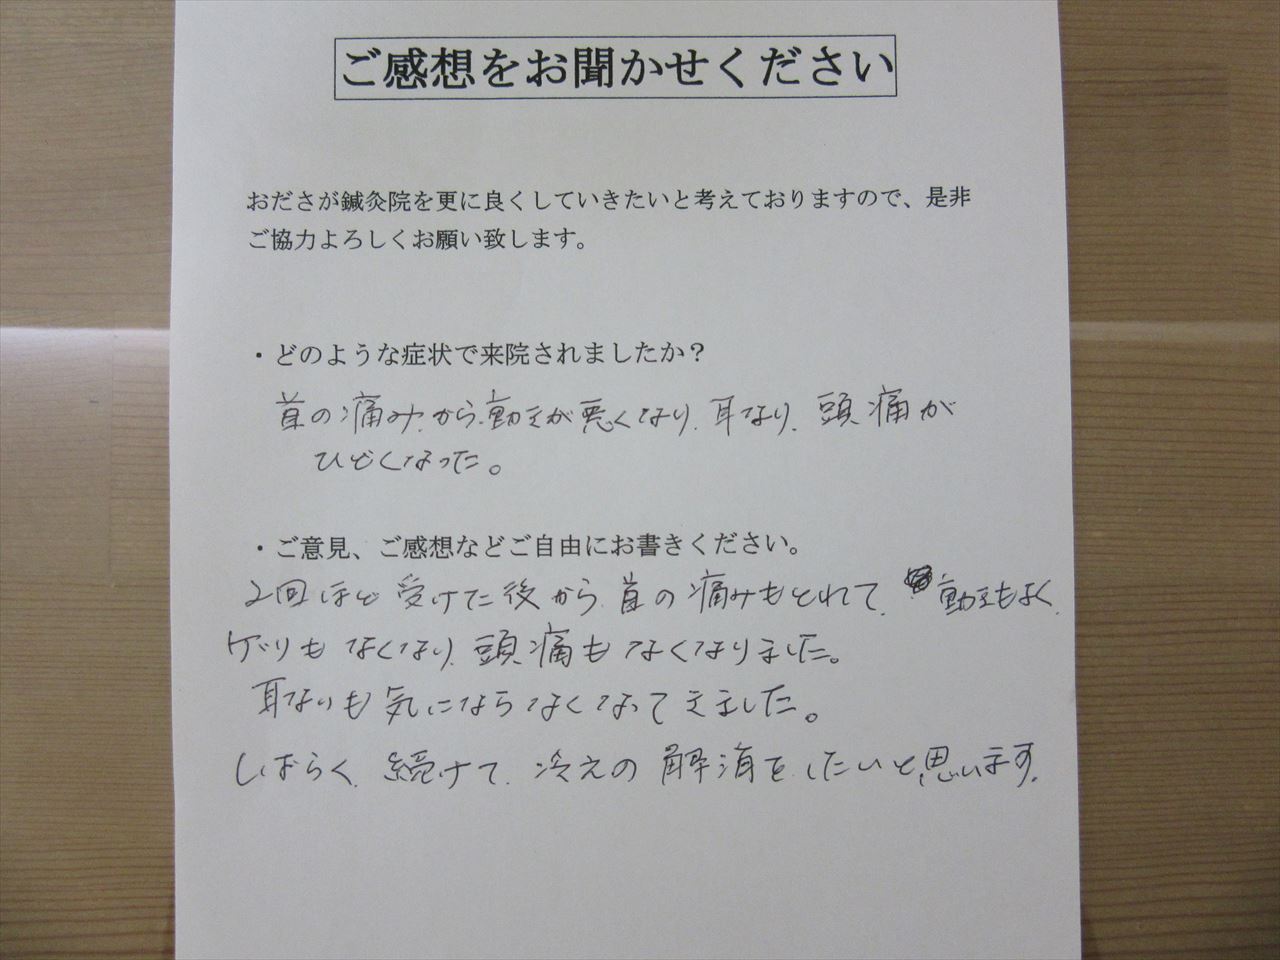 ご感想をお聞かせください
おださが鍼灸院を更に良くしていきたいと考えておりますので、是非
ご協力よろしくお願い致します。
・どのような症状で来院されましたか？
首の痛みから動きが悪くなり、耳なり、頭痛が
ひどくなった。
・ご意見、ご感想などご自由にお書きください。
2回ほど受けた後から、首の痛みもとれて、動きもよく、
ゲリもなくなり、頭痛もなくなりました。
耳なりも気にならなくなってきました。
しばらく、続けて、冷えの解消をしたいと思います。